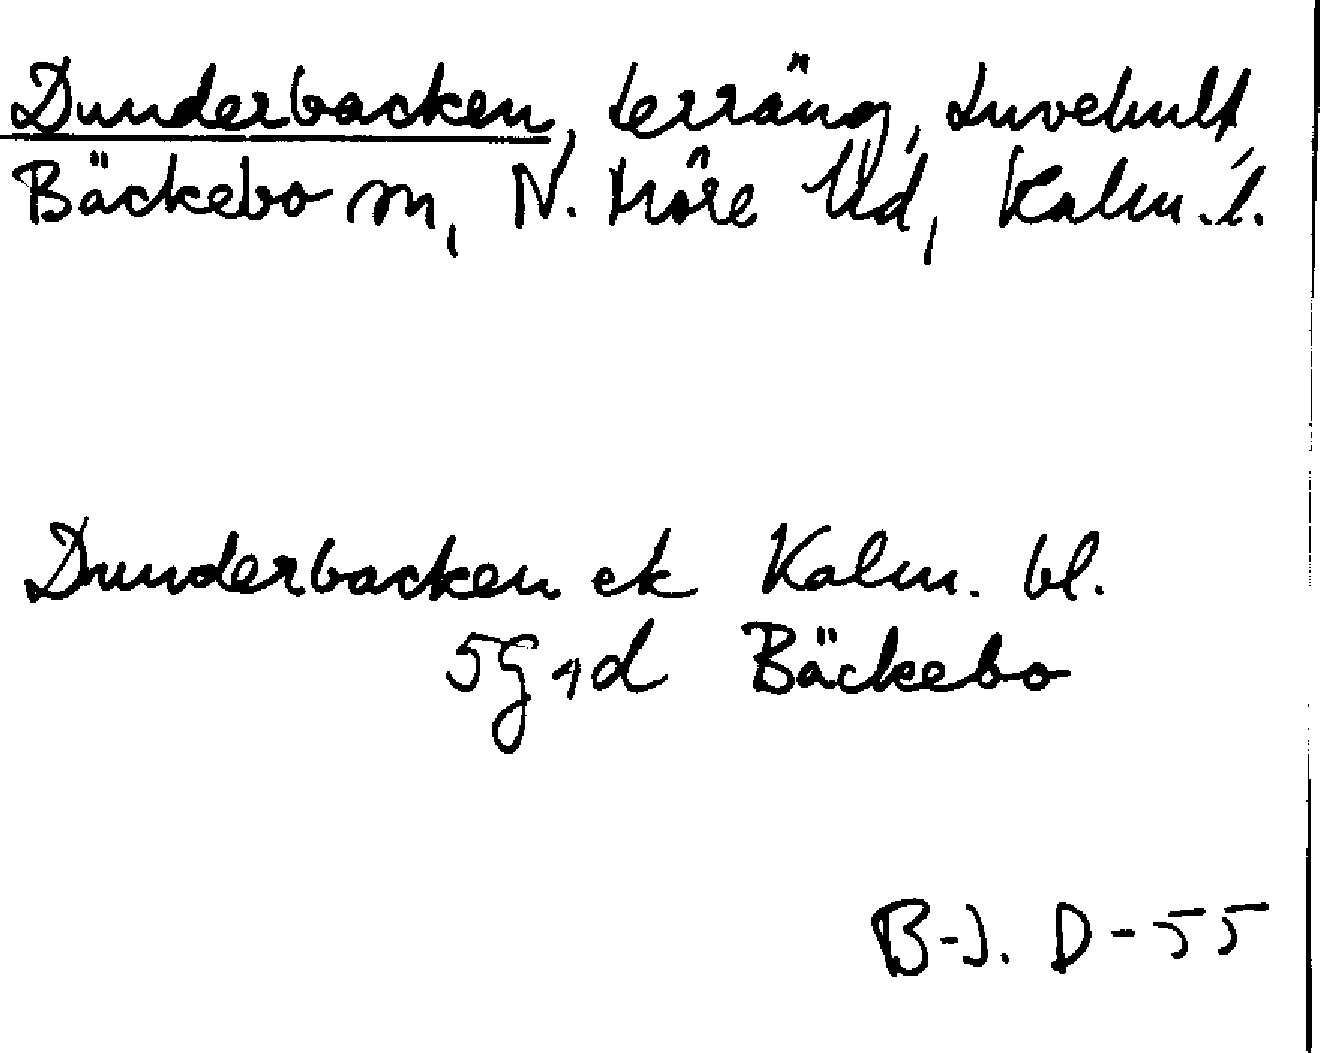 Dunderbacken, terräng, Luvehult,
Bäckebo sn, N. Möre hd, Kalm. l.
Dunderbacken ek Kalm. bl.
5g 1d Bäckebo
B-J. D-55